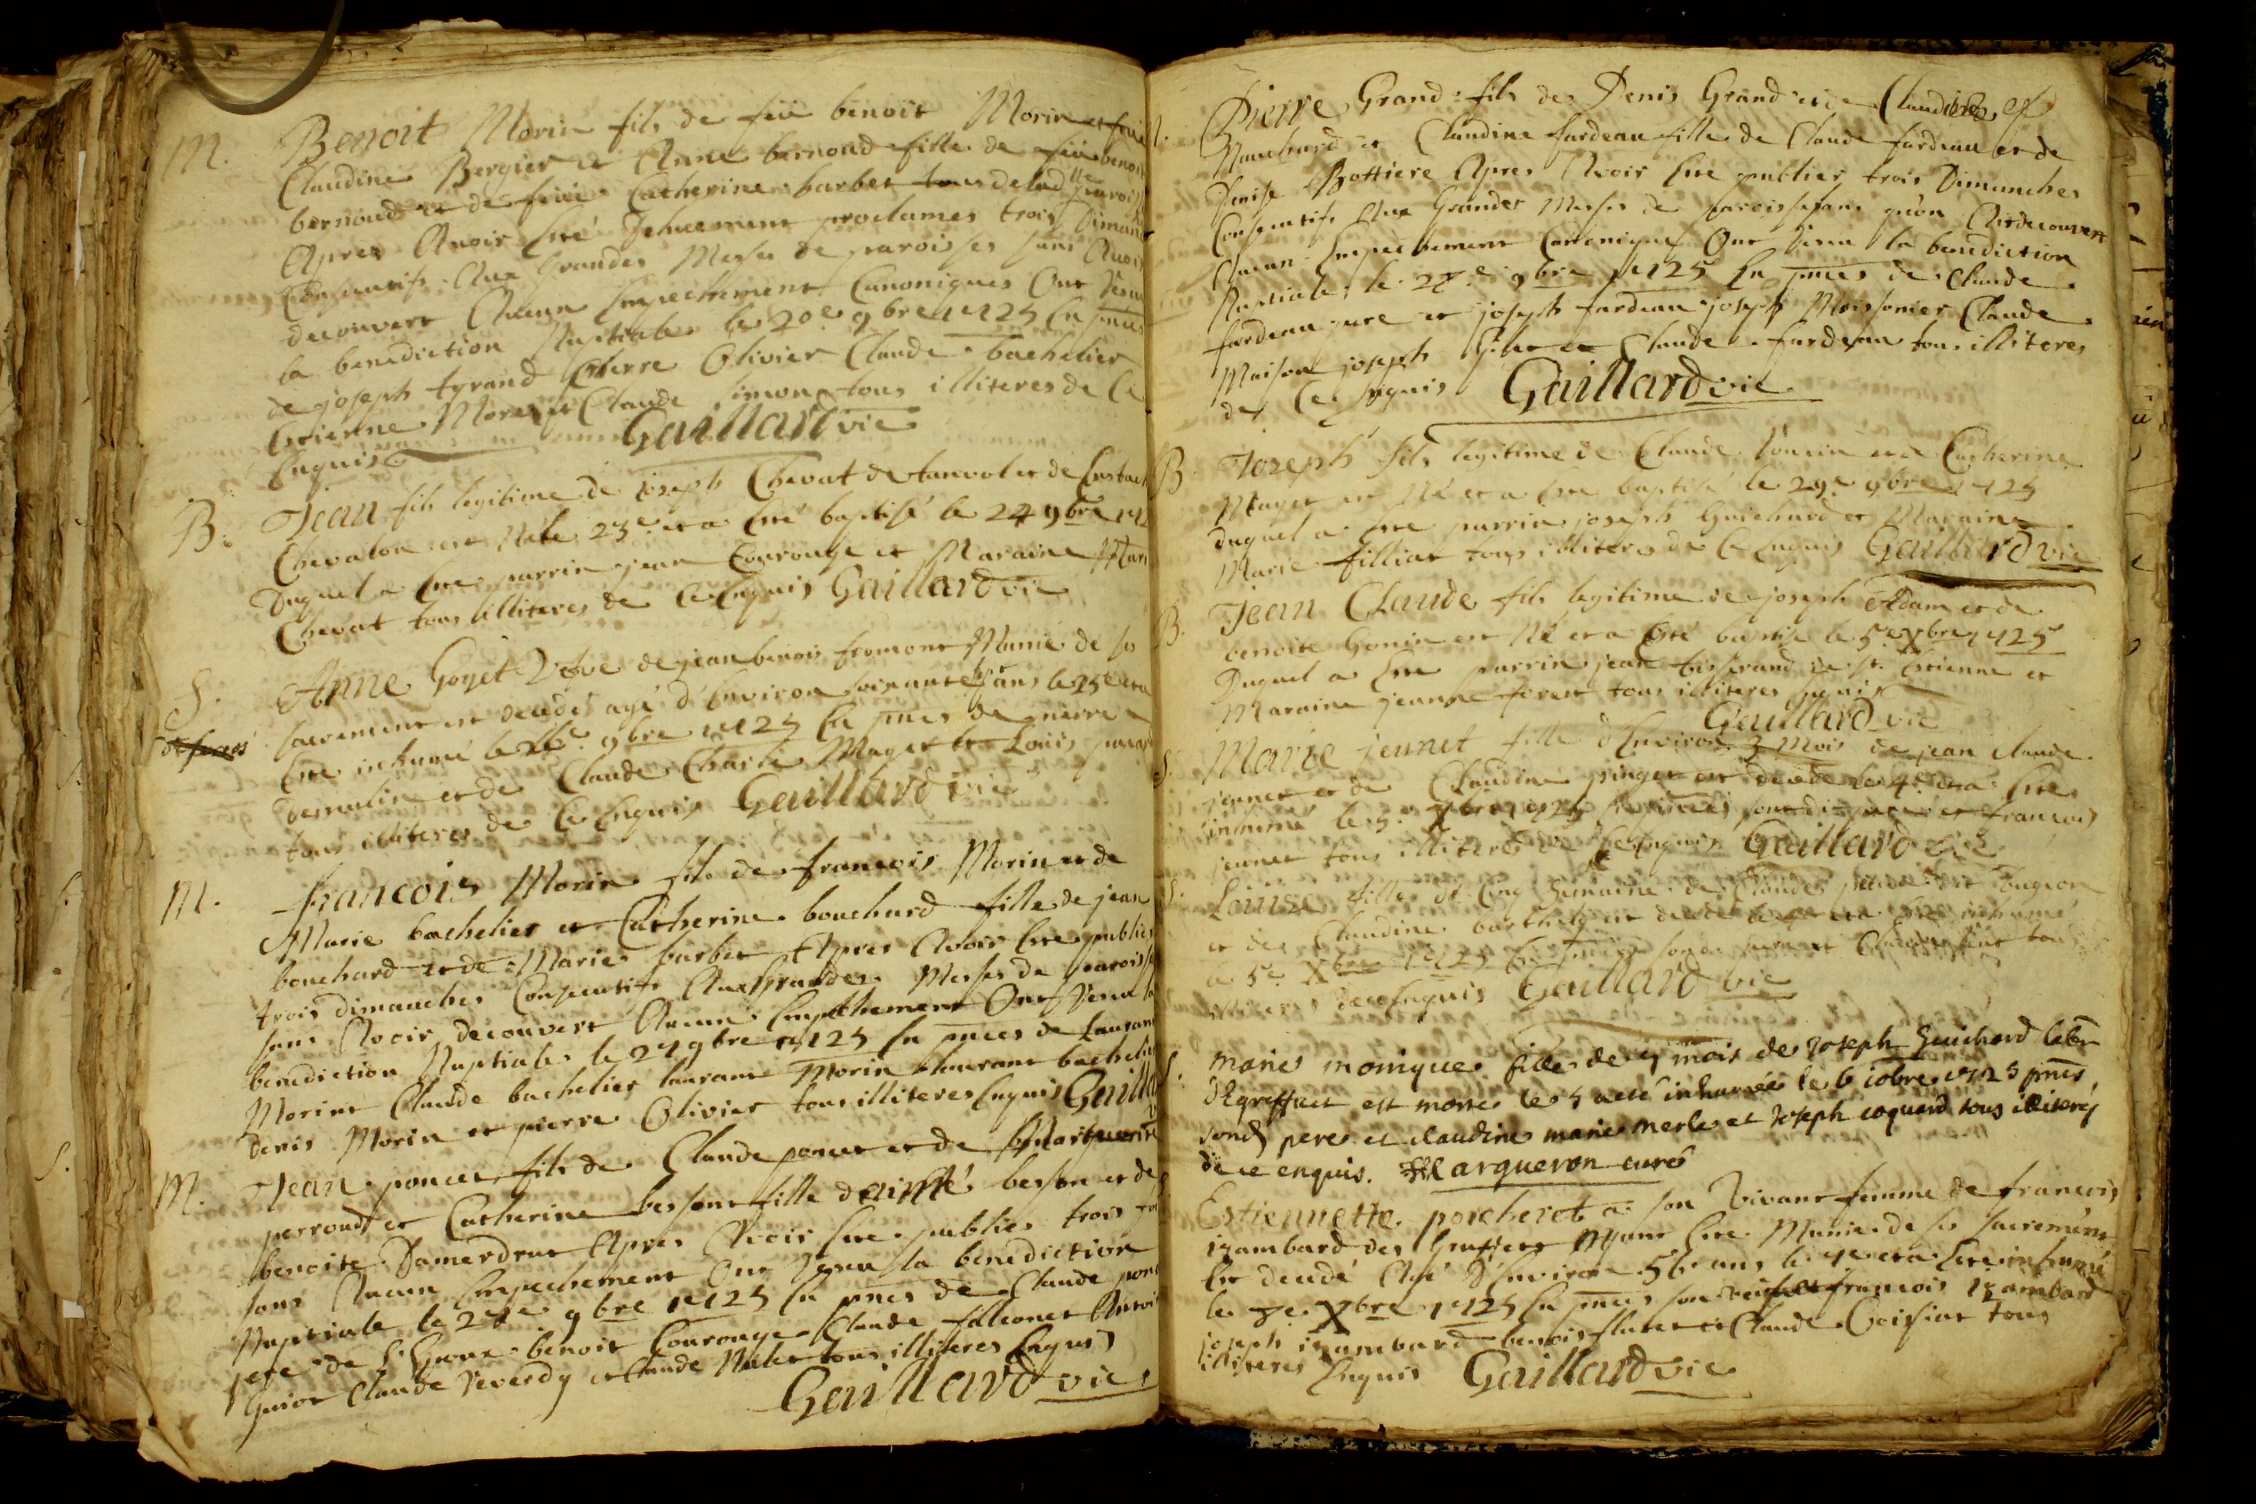 M. Benoit Morin fils de feü benoit Morin et feüe
Claudine Bergier et Anne bernoud fille de feü benoit
bernoud et de feüe Catherine barbet tous de lad parois
Apres Avoir Eté Dehuement proclames trois Dimanc
Consecutifs Aux Grandes Messes de paroisses sans Avoir
decouvert Aucun Empechement Canoniques Ont Receu
la benediction Nuptiale le 20e 9bre 1725 En pnces
de joseph tyrand pierre Olivier Claude bachelier
Etienne Morel et Claude Simon tous illiteres de Ce
Enquis Gaillard vic
B. Jean fils legitime de joseph Chevat de et de
Chevalon est Né le 23e et a Eté baptisé le 24 9bre 172
Duquel a Ete parrin jean Courouge et Maraine Mari
Chevat tous illiteres de Ce Enquis Gaillard vic
S. Anne Goyet Vefve de jean benois fromont Munie de ses
sacrement est decedé agé d'Environ soixante ans le 25e et a
Ete inhumé le 26e 9bre 1725 En pnces de pierre
Demulin et de Claude Charle Mayet et Louis
tous illiteres de Ce Enquis Gaillard vic
M. francois Morin fils de francois Morin et de
Marie bachelier et Catherine bouchard fille de jean
bouchard et de Marie barbet Apres Avoir Ete publies
trois dimanches Consecutifs Aux Grandes Messes de paroisse
sans Avoir decouvert Aucun Empechement Ont Receu la
benediction Nuptiale le 27 9bre 1725 En pnces de Laurant
Morin Claude bachelier laurant Morin laurant bachelier
denis Morin et pierre Olivier tous illiteres Enquis Gailla
M. Jean poncet fils de Claude poncet et de Marguerite
perroud et Catherine besson fille d'aimé besson et de
benoite Damerdrut Apres Avoir Ete publies trois
sans Aucun Empechement Ont Receu la benediction
Nuptiale le 27e 9bre 1725 En pnces de Claude ponc
pere de benoit Courouge Claude falconet Antoi
Guiot Claude Reverdy et Claude Nalet tous illiteres Enquis
Gaillard vic
Pierre Grand fils de Denis Grand et de Claudine
Manchard et Claudine fardeau fille de Claude fardeau et de
Denise Bottiere Apres Avoir Ete publies trois Dimanches
Consecutifs Aux Grandes Messes de paroisse sans qu'on Ait decouvert
Aucun Empechement Canoniques Ont Receu la benediction
Nuptiale le 27e 9bre 1725 En pnces de Claude
fardeau pere et joseph fardeau joseph Moissonier Claude
Maison joseph et Claude fardeau tous illiteres
de Ce Enquis Gaillard vic
B. Joseph fils legitime de Claude et de Catherine
Mayet est Né et a Ete baptisé le 29e 9bre 1725
Duquel a Ete parrin joseph Guichard et Maraine
Marie filliat tous illiteres de Ce Enquis Gaillard vic
B. Jean Claude fils legitime de joseph Adam et de
benoite Gonin est Né et a Eté baptisé le 5e Xbre 1725
Duquel a Ete parrin jean tisserand de st Etienne et
Maraine jeanne forest tous illiteres Enquis
Gaillard vic
S. Marie jeunet fille d'Environ 3 Mois de jean Claude
jeunet et de Claudine pinget est decede le 4e et a Ete
inhumé le 5e Xbre 1725 En pnces et francois
jeunet tous illiteres de Ce Enquis Gaillard vic
S. Louise fille de Cinq Semaine de Claude
et de Claudine barthely est decedé et a Ete inhumé
le 5e Xbre 1725 En pnces son pere et Claude tous
illiteres de ce Enquis Gaillard vic
S. marie monique fille de 5 mois de Joseph Guichard
est morte le 5 a eté inhumée le 6 Xbre 1725 pnts
sond pere et claudine marie merle et Joseph coquard tous illiteres
de ce enquis. Marqueron curé
Estiennette porcheret a son Vivant femme de francois
izambard des Ayant Ete Munie de ses sacrement
Est decedé Agé D'Environ 56 ans le et a Ete inhumé
le 7e Xbre 1725 En pnces son francois izambard
joseph izambard benois et Claude tous
illiteres Enquis Gaillard vic